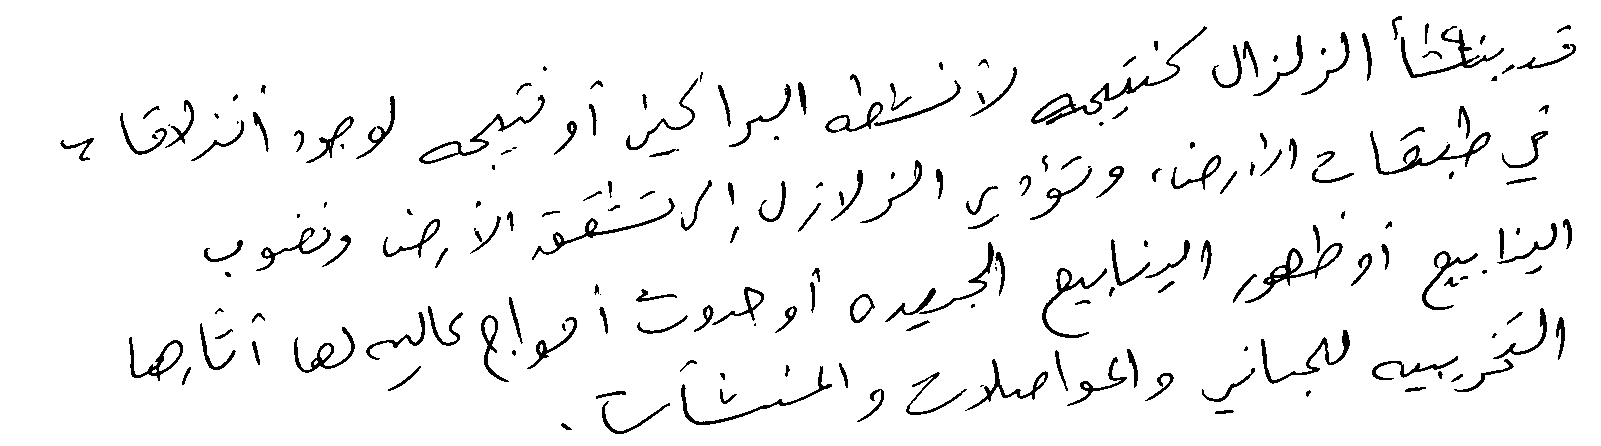 قد ينشأ الزلزال كنتيجه لأنشطه البراكين أو نتيجه لوجود أنزلاقات
في طبقات الأرض، وتؤدي الزلازل إلى تشقق الأرض ونضوب
الينابيع أو ظهور الينابيع الجديده أو حدوث أمواج عاليه لها آثارها
التخريبيه للمباني والمواصلات والمنشآت.